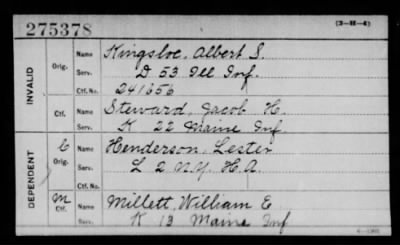 275378 (3-H-4)
INVALID Orig. Name Kingsloe, Albert S.
Serv. D 53 Ill Inf.
Ctf. No. 241656
Ctf. Name Steward, Jacob H.
Serv. K 22 Maine Inf.
DEPENDENT C Orig. Name Henderson, Lester
Serv. L 2 N.Y. H.A.
Ctf. No.
M Ctf. Name Millett, William E
Serv. K 13 Maine Inf